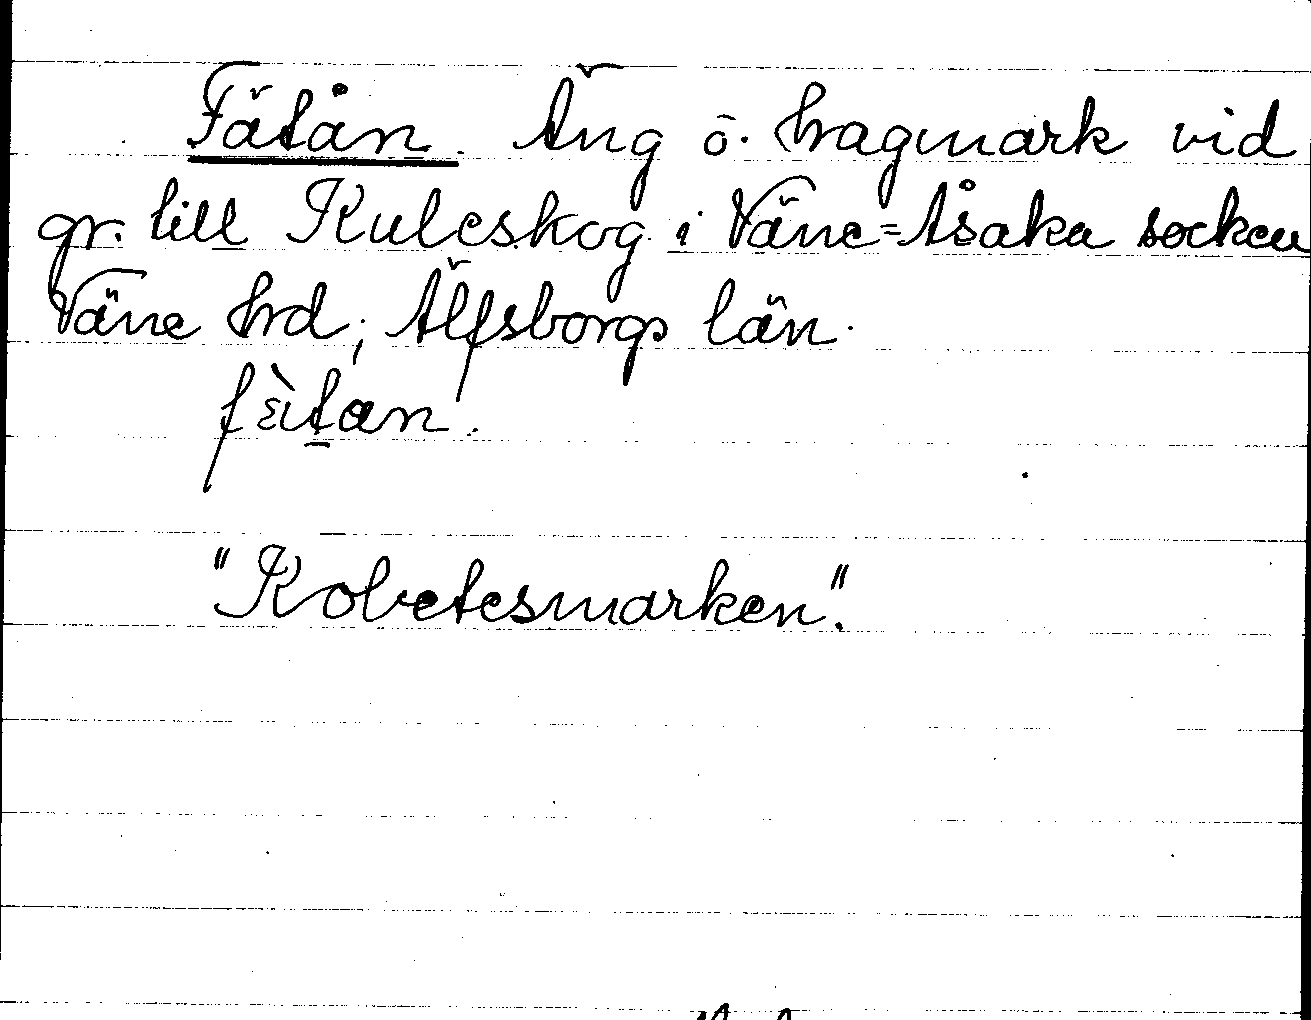 Fätån. Äng ö. hagmark vid
gr. till Kuleskog i Väne-Åsaka socken
Väne hrd, Älfsborgs län.
"Kobetesmarken".